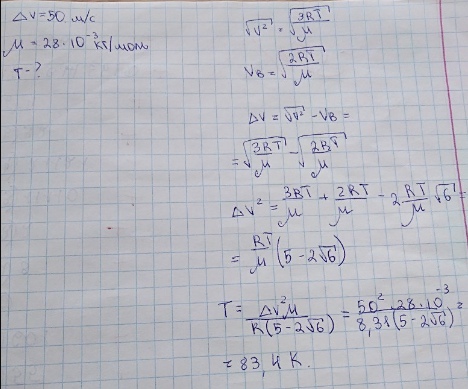 Δv = 50 м/с
μ = 28 · 10⁻³ кг/моль
T - ?
√v² = √(3RT/μ)
vв = √(2RT/μ)
Δv = √v² - vв =
= √(3RT/μ) - √(2RT/μ)
Δv² = 3RT/μ + 2RT/μ - 2 RT/μ √6 =
= RT/μ (5 - 2√6)
T = Δv²μ / R(5 - 2√6) = 50² · 28 · 10⁻³ / 8,31(5 - 2√6) =
= 83,4 K.